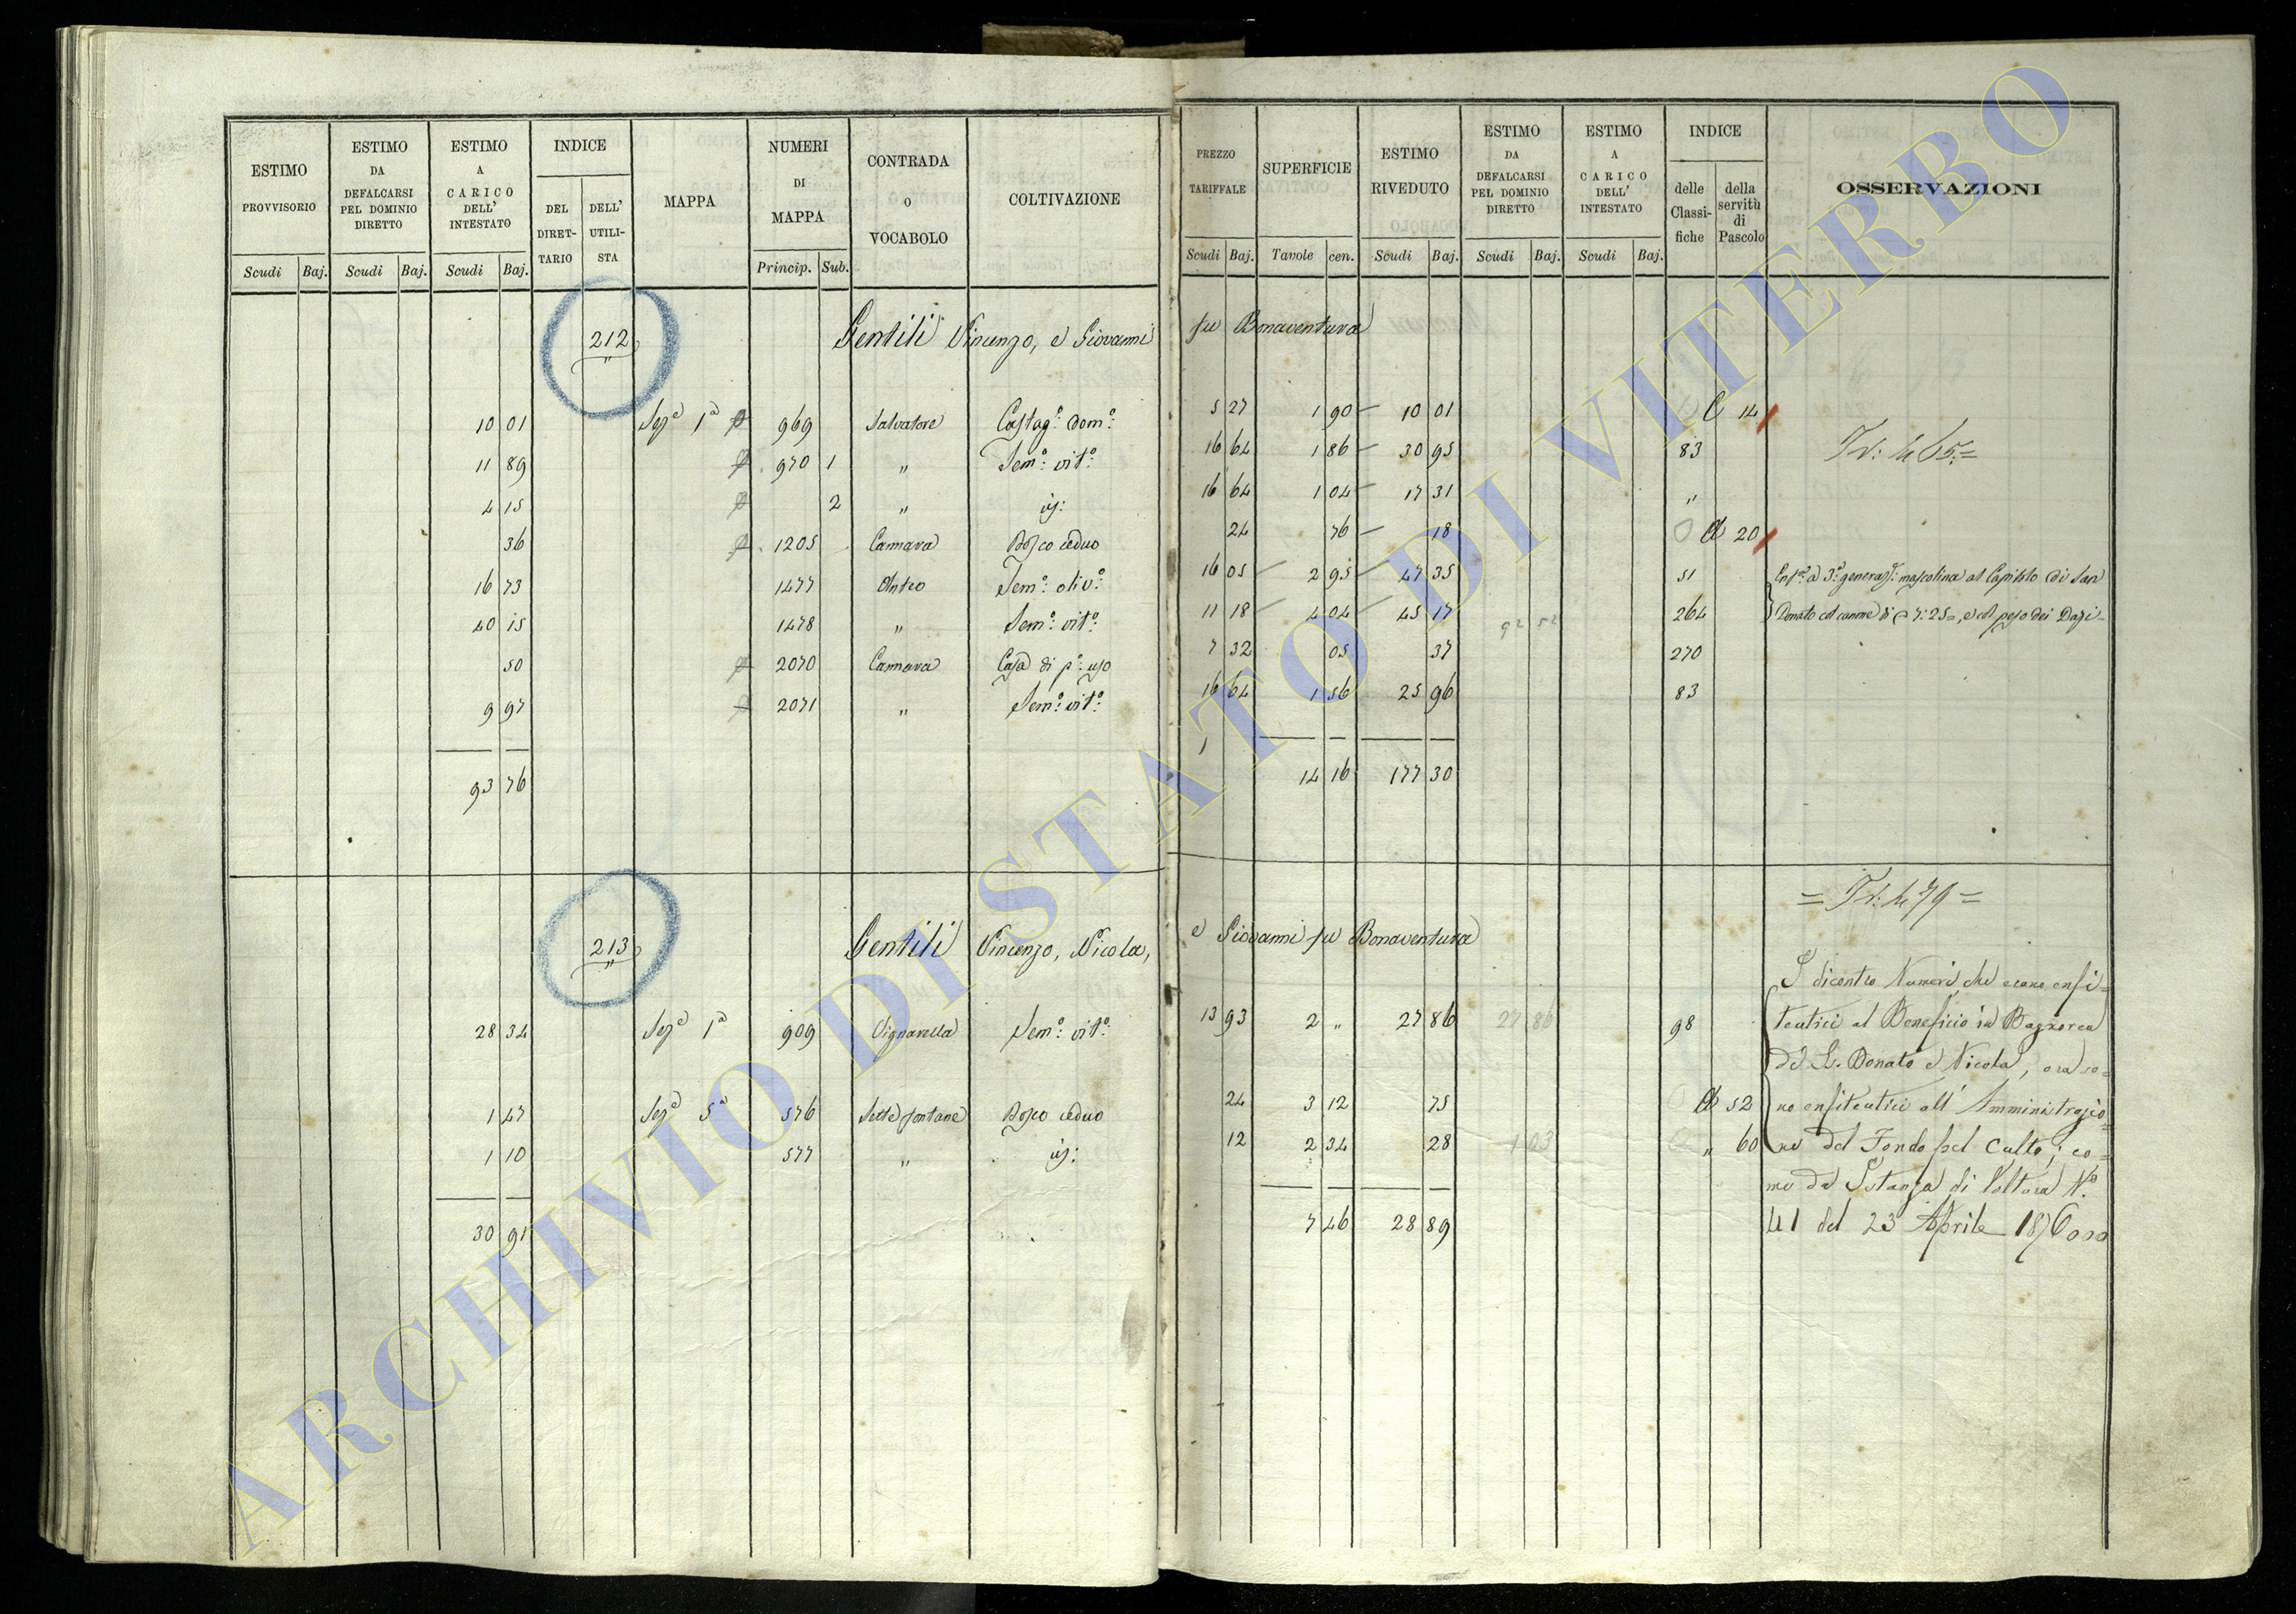 ESTIMO PROVVISORIO | ESTIMO DA DEFALCARSI PEL DOMINIO DIRETTO | ESTIMO A CARICO DELL' INTESTATO | INDICE | MAPPA | NUMERI DI MAPPA | CONTRADA O VOCABOLO | COLTIVAZIONE | PREZZO TARIFFALE | SUPERFICIE | ESTIMO RIVEDUTO | ESTIMO DA DEFALCARSI PEL DOMINIO DIRETTO | ESTIMO A CARICO DELL' INTESTATO | INDICE | OSSERVAZIONI
DEL DIRET-TARIO | DELL' UTILI-STA | delle Classi-fiche | della servitù di Pascolo
Scudi | Baj. | Scudi | Baj. | Scudi | Baj. | Princip. | Sub. | Scudi | Baj. | Tavole | cen. | Scudi | Baj. | Scudi | Baj. | Scudi | Baj.
212 Gentili Vincenzo, e Giovanni fu Bonaventura
10 01 Sez.e 1a 969 Salvatore Castag.o dom.o 5 27 1 90 10 01 C 14
11 89 970 1 " Sem.o vit.o 16 64 1 86 30 95 83
4 15 2 " id: 16 64 1 04 17 31 "
36 1205 Cannara Bosco ceduo 24 76 18 A 20
16 73 1477 Sem.o oliv.o 16 05 2 95 47 35 51
40 15 1478 " Sem.o vit.o 11 18 4 04 45 17 92 52 264
50 2070 Cannara Casa di p.o uso 7 32 05 37 270
9 97 2071 " Sem.o vit.o 16 64 1 56 25 96 83
93 76 14 16 177 30
Enf.a a 3.a generaz.e mascolina al Capitolo di San
Donato col canone di 7:25=, e col peso dei Dazi
213 Gentili Vincenzo, Nicola, e Giovanni fu Bonaventura
28 34 Sez.e 1a 909 Vignarella Sem.o vit.o 13 93 2 " 27 86 27 86 98
1 47 Sez.e 5a 576 Sette fontane Bosco ceduo 24 3 12 75 A 52
1 10 577 " id: 12 2 34 28 1 03 " 60
30 91 7 46 28 89
= Tr: N 79 =
I dicontro Numeri che erano enfi=
teutici al Beneficio in Bagnorea
de' S.S. Donato e Nicola, ora so=
no enfiteutici all' Amministrazio=
ne del Fondo pel Culto; co=
me da Istanza di Voltura N.o
41 del 23 Aprile 1876
ARCHIVIO DI STATO DI VITERBO